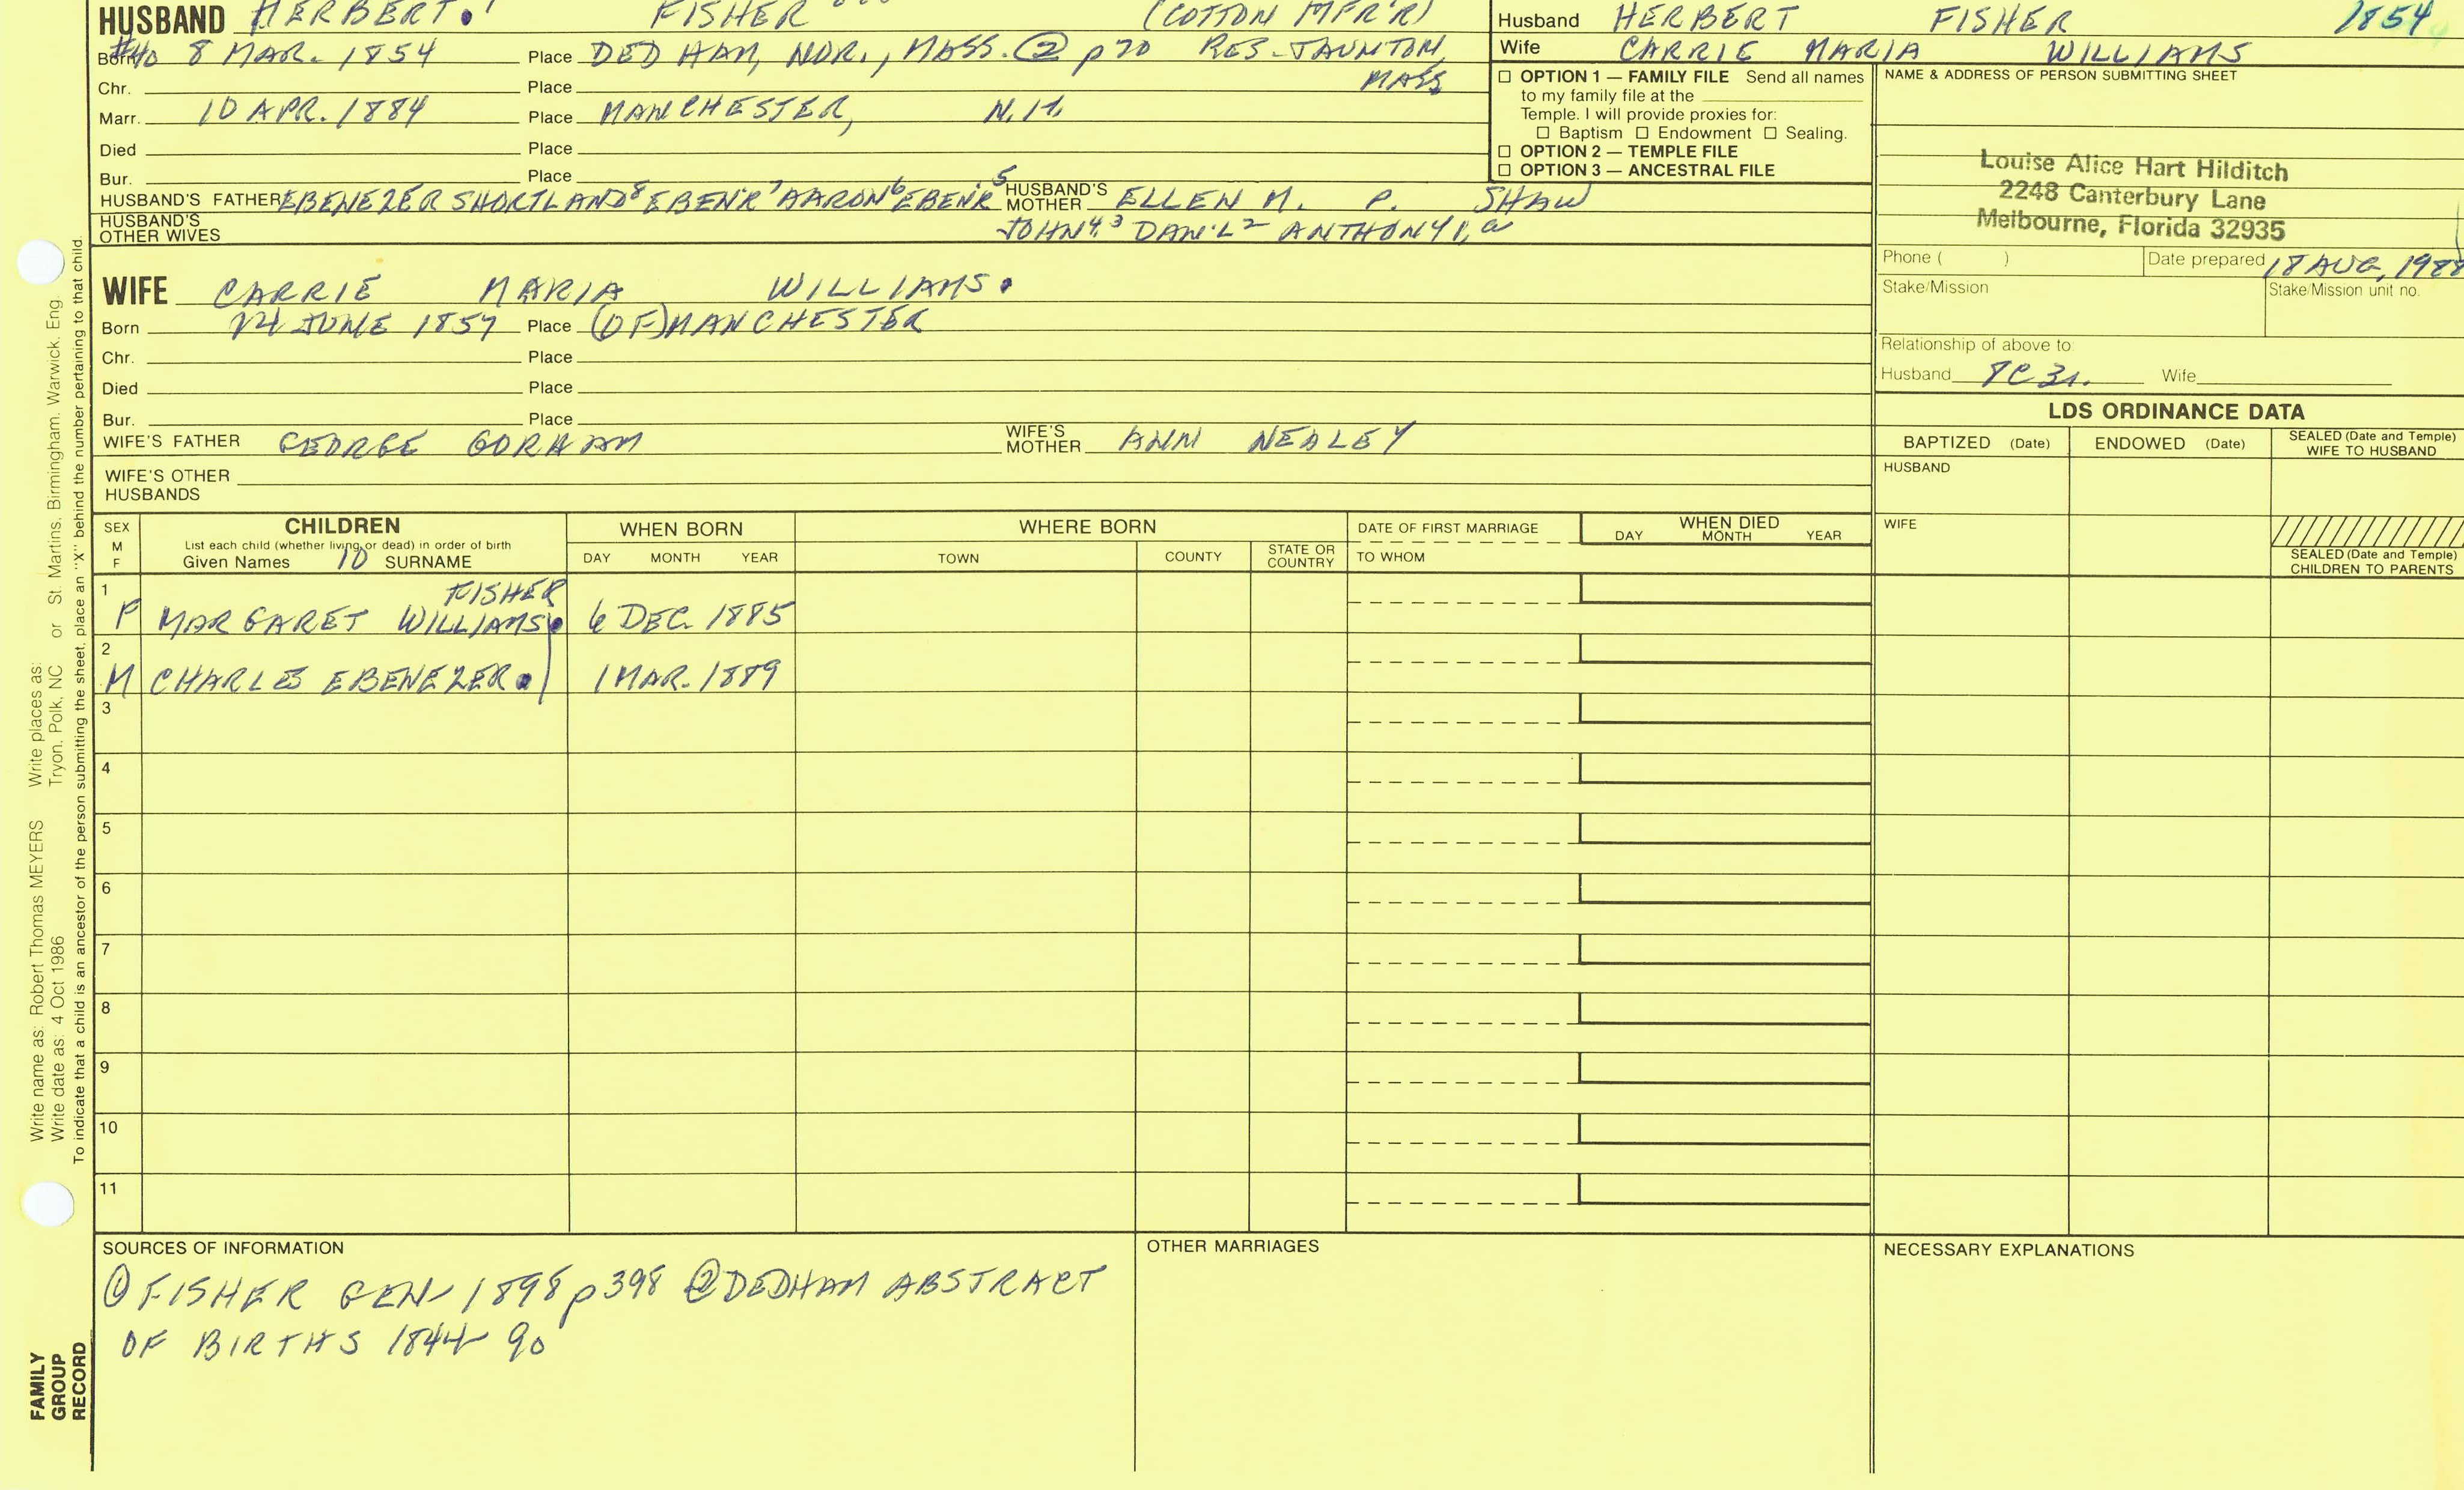 HUSBAND HERBERT. FISHER (COTTON MFR'R)
Born #40 8 MAR. 1854 Place DEDHAM, NOR., MASS. ② p20 RES-TAUNTON, MASS
Chr. Place
Marr. 10 APR. 1884 Place MANCHESTER, N.H.
Died Place
Bur. Place
HUSBAND'S FATHER EBENEZER SHORTLAND⁸ EBEN'R⁷ AARON⁶ EBEN'R⁵ HUSBAND'S MOTHER ELLEN M. P. SHAW
HUSBAND'S OTHER WIVES JOHN⁴,³ DAN'L² ANTHONY1,a
Husband HERBERT FISHER 1854
Wife CARRIE MARIA WILLIAMS
☐ OPTION 1 — FAMILY FILE Send all names
to my family file at the
Temple. I will provide proxies for:
☐ Baptism ☐ Endowment ☐ Sealing.
☐ OPTION 2 — TEMPLE FILE
☐ OPTION 3 — ANCESTRAL FILE
NAME & ADDRESS OF PERSON SUBMITTING SHEET
Louise Alice Hart Hilditch
2248 Canterbury Lane
Melbourne, Florida 32935
Phone ( ) Date prepared 18 AUG, 1988
Stake/Mission Stake/Mission unit no.
Relationship of above to:
Husband Wife
WIFE CARRIE MARIA WILLIAMS.
Born JUNE 1857 Place (OF) MANCHESTER
Chr. Place
Died Place
Bur. Place
WIFE'S FATHER GEORGE GORHAM WIFE'S MOTHER ANN NEALEY
WIFE'S OTHER HUSBANDS
LDS ORDINANCE DATA
BAPTIZED (Date) ENDOWED (Date) SEALED (Date and Temple) WIFE TO HUSBAND
HUSBAND
WIFE
SEALED (Date and Temple) CHILDREN TO PARENTS
SEX M F
CHILDREN
List each child (whether living or dead) in order of birth
Given Names 10 SURNAME
WHEN BORN
DAY MONTH YEAR
WHERE BORN
TOWN COUNTY STATE OR COUNTRY
DATE OF FIRST MARRIAGE
TO WHOM
WHEN DIED
DAY MONTH YEAR
1 FISHER
F MARGARET WILLIAMS. 6 DEC. 1885
2
M CHARLES EBENEZER. 1 MAR. 1889
3
4
5
6
7
8
9
10
11
SOURCES OF INFORMATION
① FISHER GEN 1898 p398 ② DEDHAM ABSTRACT
OF BIRTHS 1844-90
OTHER MARRIAGES
NECESSARY EXPLANATIONS
Write name as: Robert Thomas MEYERS Write places as: St. Martins, Birmingham, Warwick, Eng.
Write date as: 4 Oct 1986 Tryon, Polk, NC or
To indicate that a child is an ancestor of the person submitting the sheet, place an "X" behind the number pertaining to that child.
FAMILY
GROUP
RECORD